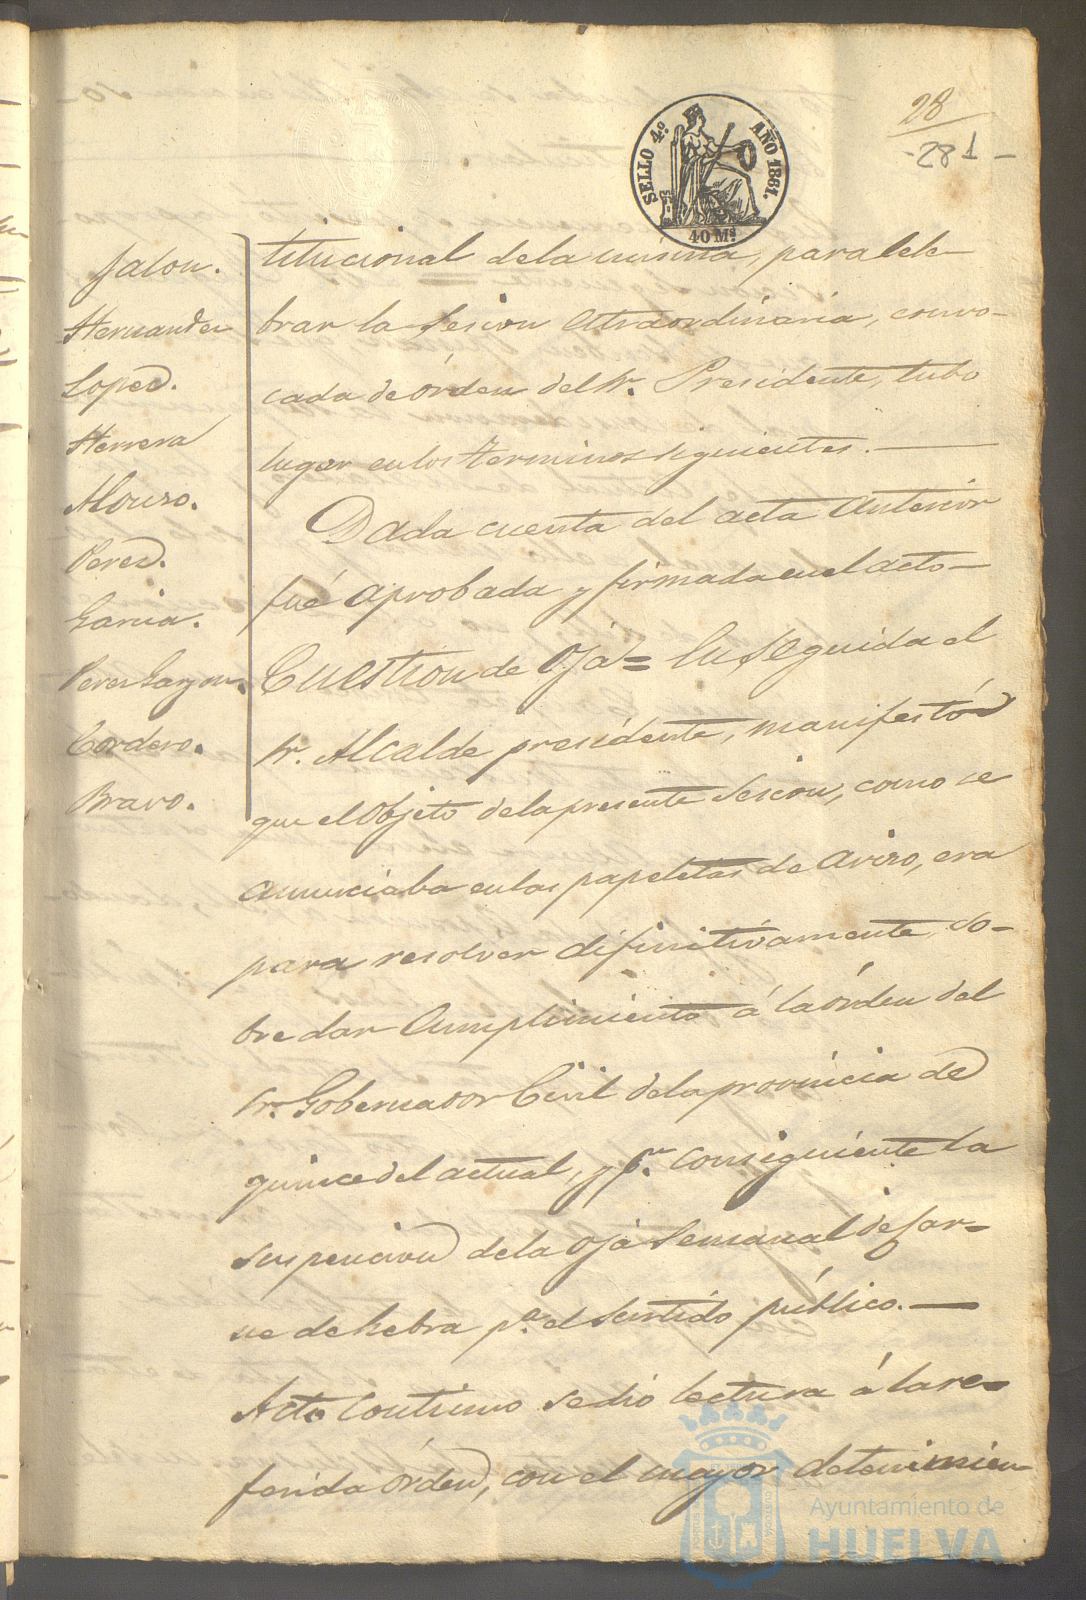 28
-281-
SELLO 4.º AÑO 1861.
40 Ms
Jalon.
Hernandez
Lopez.
Herrera
Alonso.
Perez.
Garcia.
Perez Garzon.
Cordero.
Bravo.
titucional dela misma, para cele-
brar la sesion Extraordinária, convo-
cada de órden del Sr. Presidente, tubo
lugar en los terminos siguientes.—
Dada cuenta del acta anterior
fué aprobada y firmada en el acto—
Cuestion de Oja= En seguida el
Sr. Alcalde presidente, manifestó
que el objeto dela presente sesion, como se
anunciaba en las papeletas de aviso, era
para resolver difinitivamente so-
bre dar cumplimiento á la órden del
Sr. Gobernador Civil dela provincia de
quince del actual, y pr. consiguiente la
suspencion dela oja semanal de car-
ne de hebra pa. el surtido público.—
Acto continuo se dió lectura á la re-
ferida órden, con el mayor detenimien
Ayuntamiento de
HUELVA